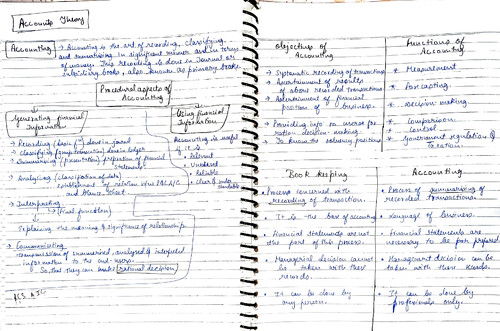 Accounts Theory
Accounting → Accounting is the art of recording, classifying
and summarising in significant manner and in terms
of money. This recording is done in Journal or
subsidiary books, also known as primary books.
Procedural aspects of
Accounting
Generating financial
Information
→ Recording (basic fⁿ) done in journal
→ Classifying (done in ledger
→ Summarising (presentation) preparation of financial
statements
→ Analysing (classification of data)
establishment of relation b/w P&L A/C
and
→ Interpreting
(final function)
Explaining the meaning & significance of relationship
→ Communicating
Transmission of summarised, analysed & interpreted
information to the end-users.
So that they can make rational decision
Using financial
Information
Accounting is useful
if it is
→ Relevant
→ Reliable
→ Clear & understandable
Objectives of
Accounting
→ Systematic recording of transactions
→ Ascertainment of results
of above recorded transactions
→ Ascertainment of financial
position of business.
→ Providing info to users for
rational decision-making.
→ To know the solvency position
Functions of
Accounting
* Measurement
* Forecasting
* Decision making
* Comparison
* Control
* Government regulation &
taxation.
Book keeping
• Process concerned with
recording of transaction.
• It is the base of accounting
• Financial statements are not
the part of this process.
• Managerial decision cannot
be taken with these
records.
• It can be done by
any person.
Accounting
• Process of summarising of
recorded transactions.
• Language of business.
• Financial statements are
necessary to be prepared.
• Management decision can be
taken with these records.
• It can be done by
professionals only.